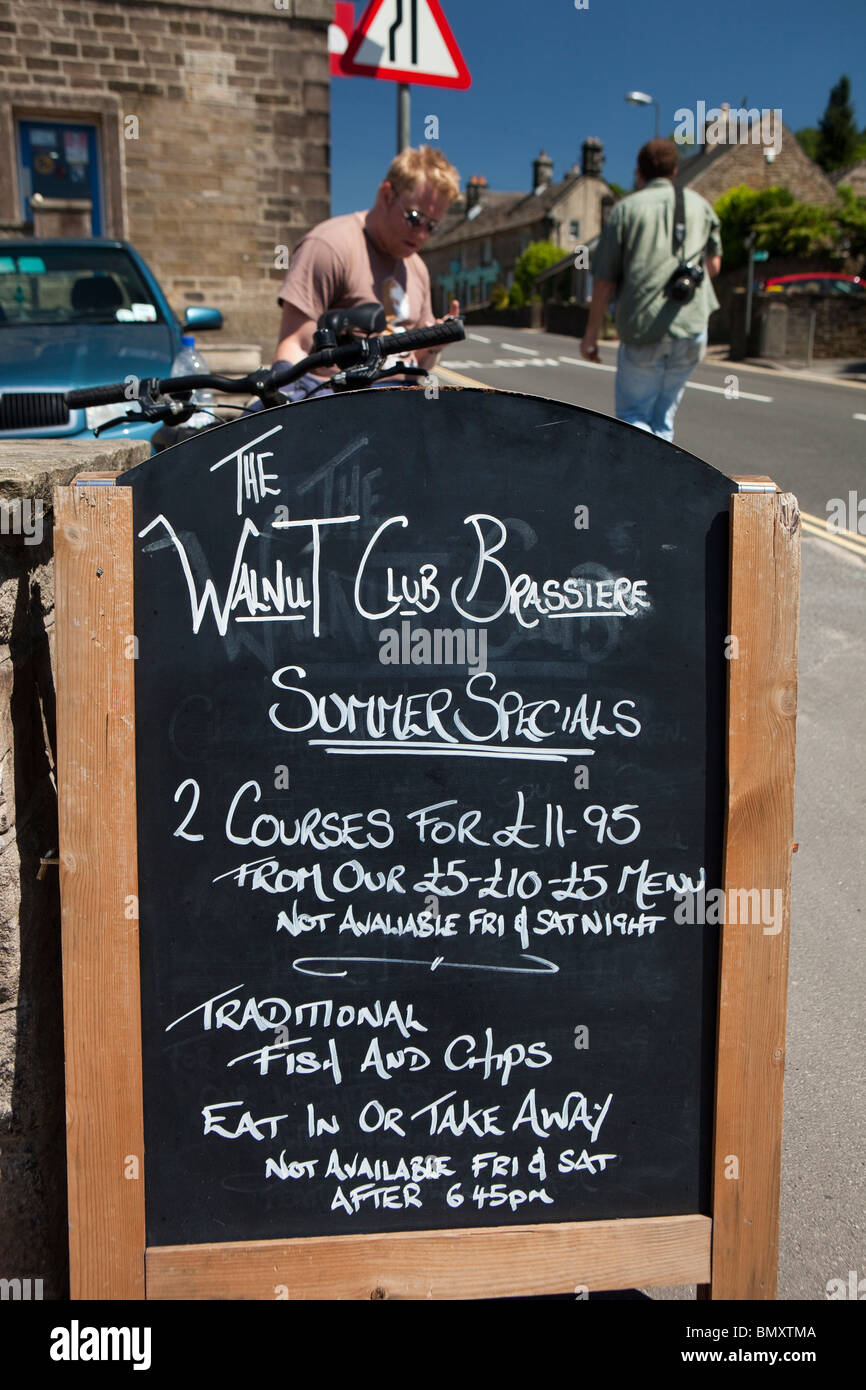 THE
WALNUT CLUB BRASSIERE
SUMMER SPECIALS
2 COURSES FOR £11-95
FROM OUR £5-£10-£5 MENU
NOT AVALIABLE FRI & SAT NIGHT
TRADITIONAL
FISH AND CHIPS
EAT IN OR TAKE AWAY
NOT AVAILABLE FRI & SAT
AFTER 6 45PM
alamy
Image ID: BMXTMA
www.alamy.com